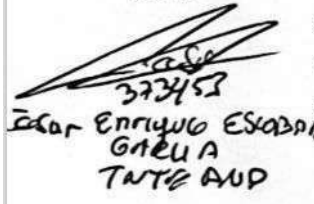 373453
Enrique ESCOBAR
GARCIA
TNTE AUD